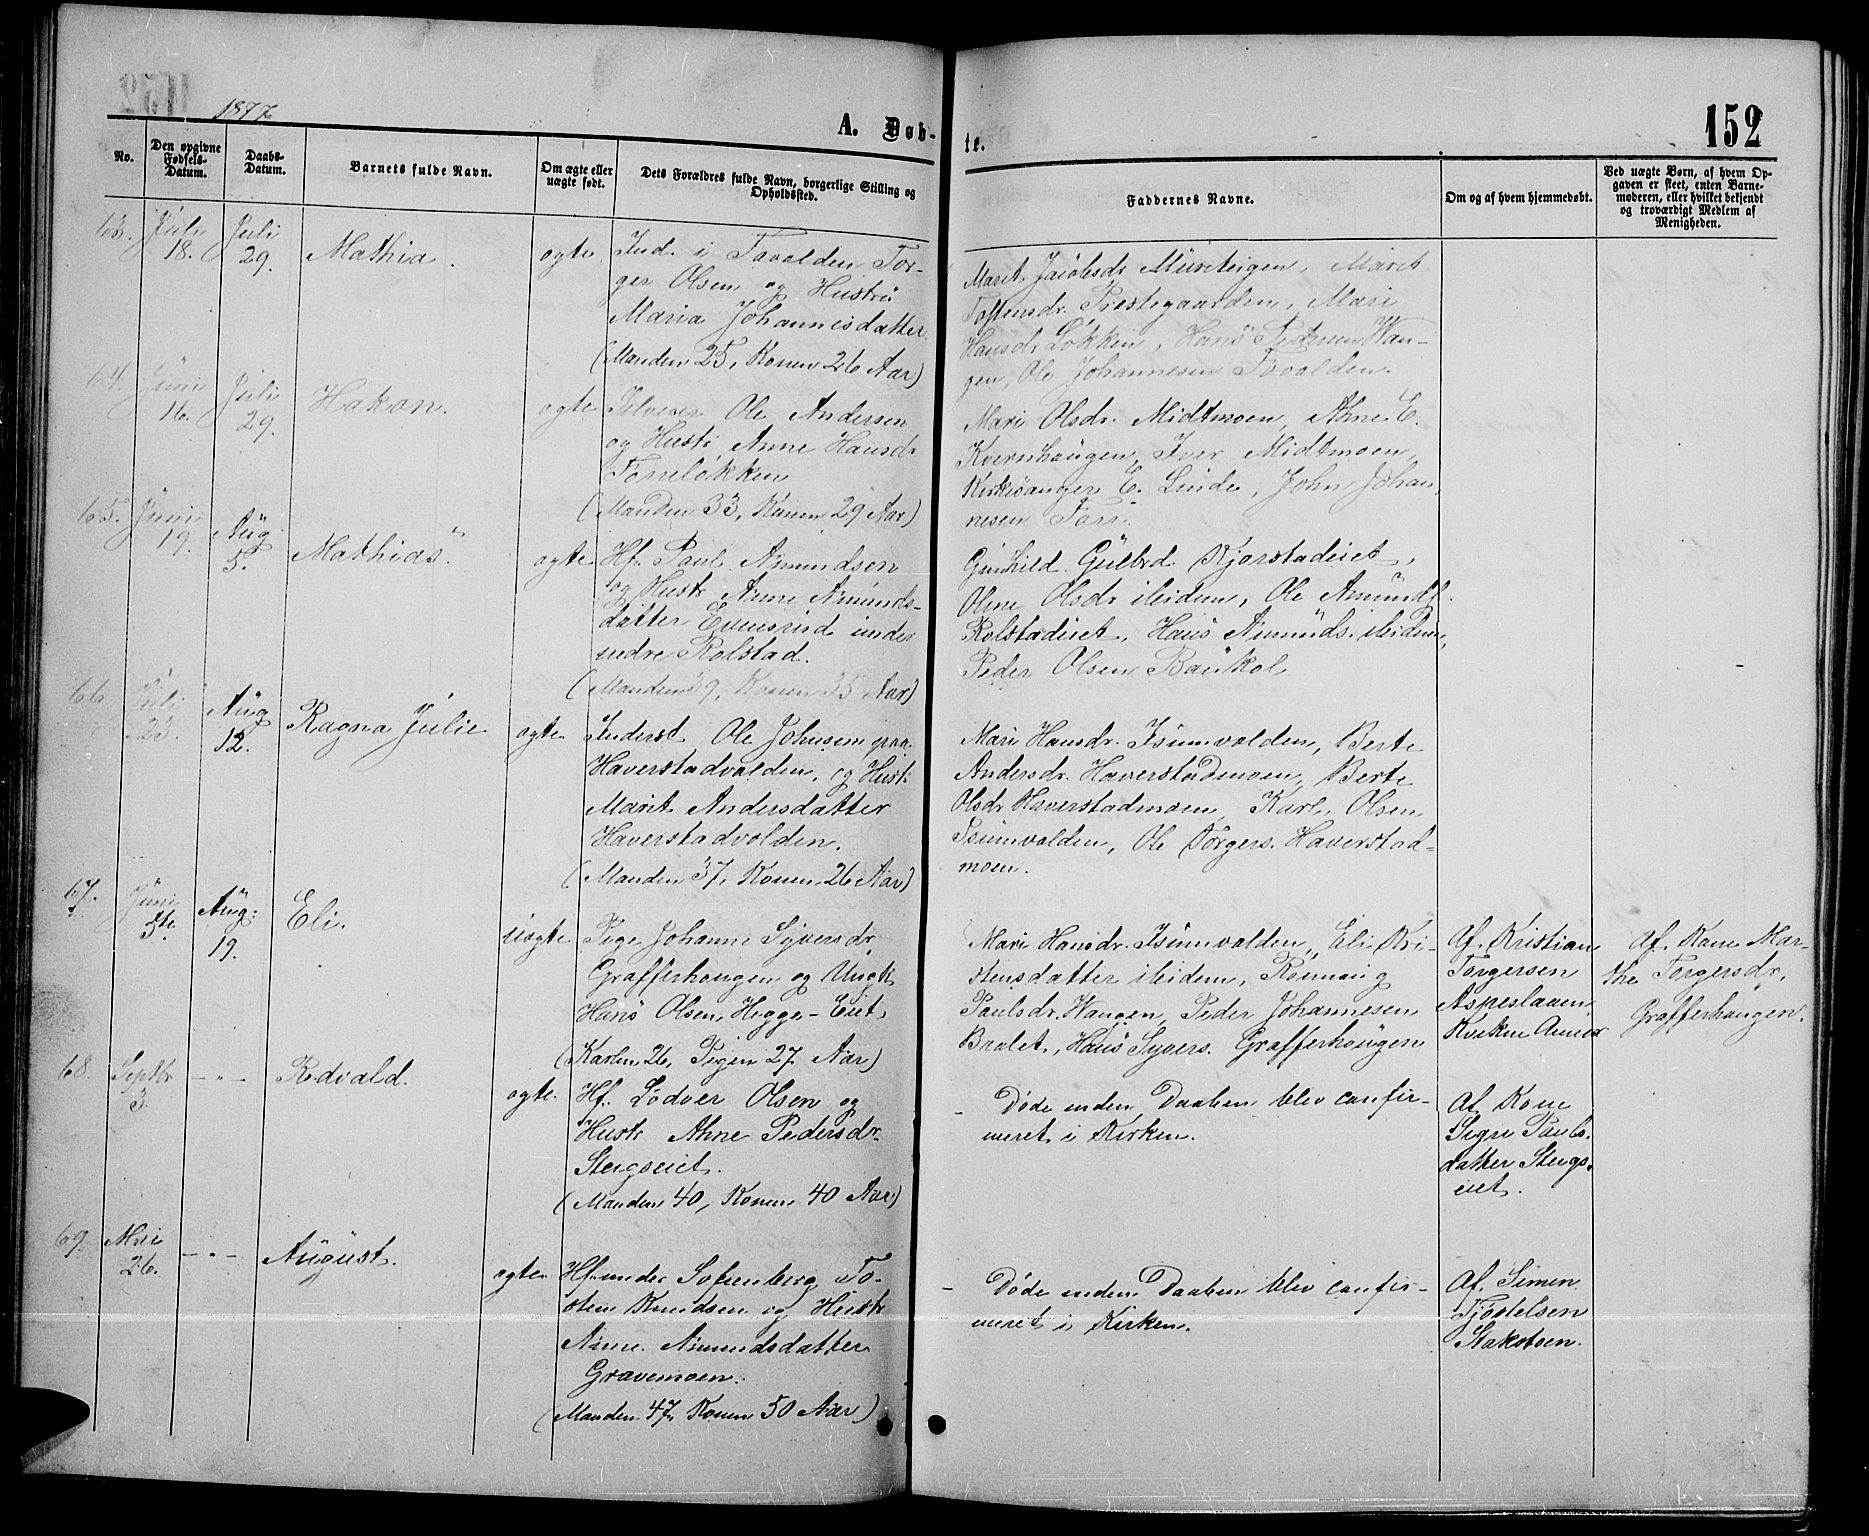 1877
A. Døb-
te.
152
No.
Den opgivne Fødsels-Datum.
Daabs-Datum.
Barnets fulde Navn.
Om ægte eller uægte født.
Dets Forældres fulde Navn, borgerlige Stilling og Opholdssted.
Faddernes Navne.
Om og af hvem hjemmedøbt.
Ved uægte Børn, af hvem Op-
gaven er skeet, enten Barne-
moderen, eller hvilket bekjendt
og troværdigt Medlem af
Menigheden.
63. Juli 18. Juli 29. Mathia. ægte
Ind. i Tovolden Tor-
ger Olsen og Hustru
Maria Johannesdatter
(Manden 25, Konen 26 Aar)
Marit Jacobsdr Mureteigen, Marit
Toftensdr. Prestegaarden, Mari
Hansdr Løkken, Hans Pedersen Hau-
gen, Ole Johannesen Tovolden.
64. Juni 16. Juli 29. Hakon. ægte
Ole Andersen
og Hustr Anne Hansdr
Forreløkken
(Manden 33, Konen 29 Aar)
Mari Olsdr. Midtmoen, Ahne E.
Kvernhaugen, Iver Midtmoen,
Kirkesanger E. Linde, John Johan-
nesen Forr.
65. Juni 19. Aug 5. Mathias. ægte
Hf. Paul Amundsen
og Hustr Anne Amunds-
datter Evensrud under
nedre Kolstad.
(Manden 39, Konen 35 Aar)
Gunhild Gulbrd. Kjorstadeiet,
Oline Olsdr ibidem, Ole Amundsf.
Kolstadeiet, Hans Amunds. ibidem,
Peder Olsen Baukol
66 Juli 23. Aug 12. Ragna Julie ægte.
Inderst Ole Johnsen paa
Haverstadvolden, og Hustr
Marit Andersdatter
Haverstadvolden.
(Manden 37, Konen 26 Aar)
Mari Hansdr. Isumvolden, Berte
Andersdr. Haverstadmoen, Berte
Olsdr Haverstadmoen, Karl Olsen
Isumvolden, Ole Torgers. Haverstad-
moen.
67. Juni 5te. Aug. 19. Eli. uægte
Pige Johanne Syversdr
Grafferhougen og Ungk
Hans Olsen, Hegge-Eiet
(Karlen 26, Pigen 27 Aar)
Mari Hansdr. Isumvolden, Eli Kri-
stensdatter ibidem, Rønnaug
Paulsdr. Haugen, Peder Johannesen
Bralet, Hans Syvers. Grafferhougen
Af. Kristian
Torgersen
Aspeslaaen
Kvikne Annex
Af. Kone Mar-
the Torgersdr.
Grafferhaugen.
68. Septbr 3. - " - Redvald. ægte.
Hf. Lodver Olsen og
Hustr Ahne Pedersdr.
Steigseiet.
(Manden 40, Konen 40 Aar)
- Døde inden Daaben blev confir-
meret i Kirken.
Af. Kone
Sigri Pauls-
datter Steigs-
eiet.
69. Mai 26. - " - August. ægte
Hf. under Sofienberg To-
sten Knudsen og Hustr
Anne Amundsdatter
Gravemoen.
(Manden 47, Konen 50 Aar)
- Døde inden Daaben blev confir-
meret i Kirken.
Af. Simen
Tjøstelsen
Stakstoen.